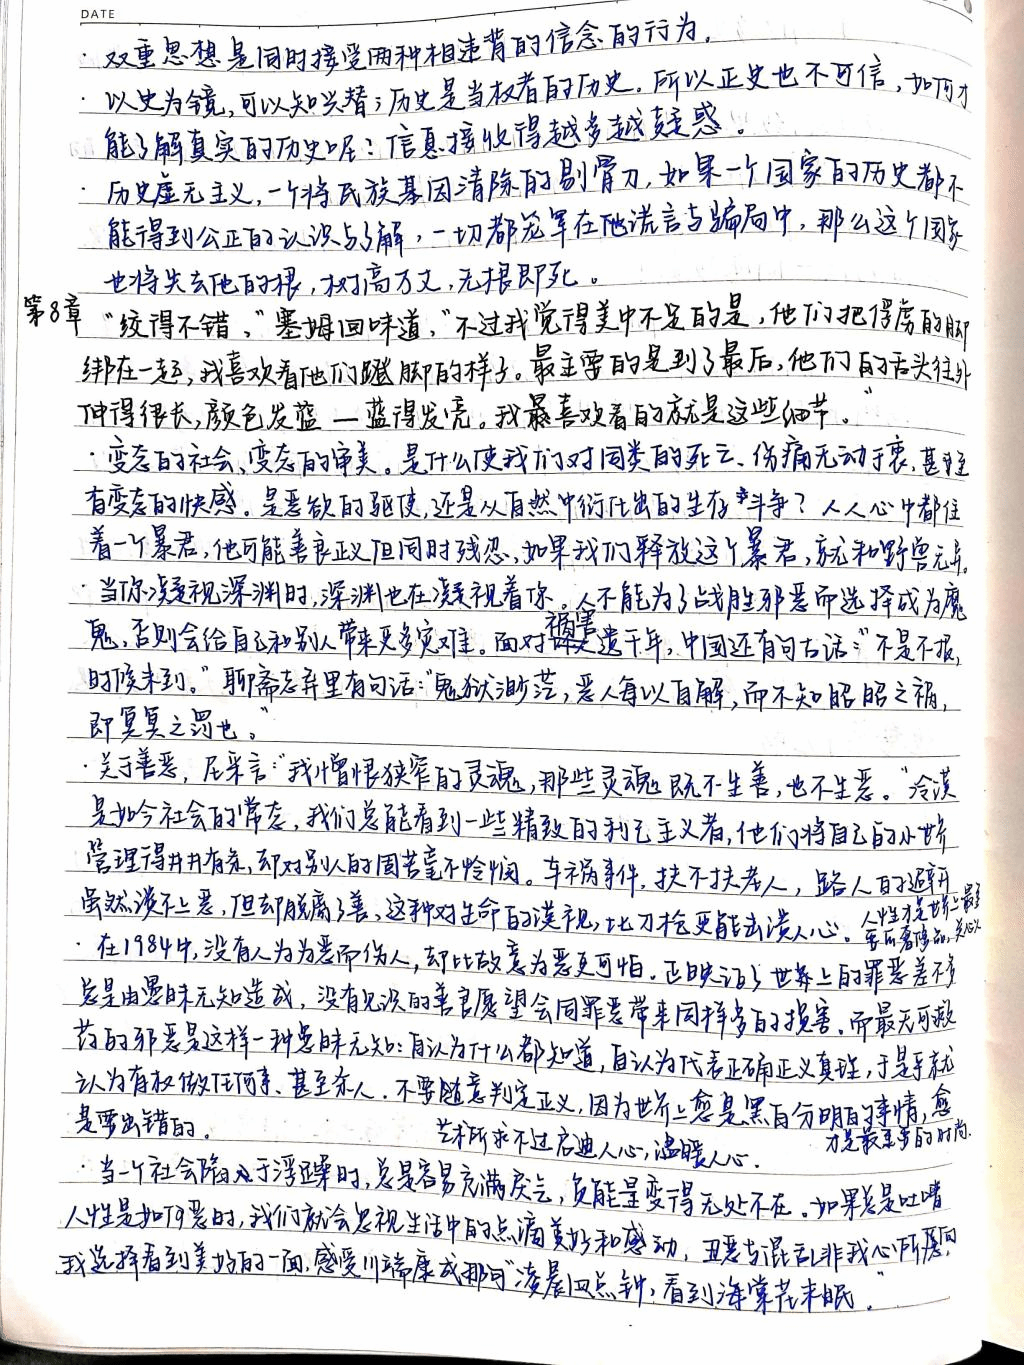 DATE
· 双重思想是同时接受两种相违背的信念的行为.
· 以史为镜,可以知兴替;历史是当权者的历史.所以正史也不可信,如何才
能了解真实的历史呢?信息接收得越多越疑惑。
· 历史虚无主义,一个将民族基因清除的剔骨刀,如果一个国家的历史都不
能得到公正的认识与了解,一切都笼罩在他谎言与骗局中,那么这个国家
也将失去他的根,树高万丈,无根即死。
第8章 "绞得不错,"塞姆回味道,"不过我觉得美中不足的是,他们把俘虏的脚
绑在一起,我喜欢看他们蹬脚的样子。最主要的是到了最后,他们的舌头往外
伸得很长,颜色发蓝—蓝得发亮。我最喜欢看的就是这些细节。"
· 变态的社会、变态的审美。是什么使我们对同类的死亡、伤痛无动于衷,甚至
有变态的快感。是恶欲的驱使,还是从自然中衍化出的生存斗争?人人心中都住
着一个暴君,他可能善良正义但同时残忍,如果我们释放这个暴君,就和野兽无异。
· 当你凝视深渊时,深渊也在凝视着你。人不能为了战胜邪恶而选择成为魔
鬼,否则会给自己和别人带来更多灾难。面对祸害遗千年,中国还有句古话:"不是不报,
时候未到。"聊斋志异里有句话:"鬼狱渺茫,恶人每以自解,而不知昭昭之祸,
即冥冥之罚也。"
· 关于善恶,尼采言:"我憎恨狭窄的灵魂,那些灵魂既不生善,也不生恶。"冷漠
是如今社会的常态,我们总能看到一些精致的利己主义者,他们将自己的小世界
管理得井井有条,却对别人的困苦毫不怜悯。车祸事件,扶不扶老人,路人的避开
虽然谈不上恶,但却脱离了善,这种对生命的漠视,比刀枪更能击溃人心。人性才是世界上最
关心人
· 在1984中,没有人为为恶而伤人,却比故意为恶更可怕.正映证了世界上的罪恶差不多
总是由愚昧无知造成,没有见识的善良愿望会同罪恶带来同样多的损害。而最无可救
药的邪恶是这样一种愚昧无知:自认为什么都知道,自认为代表正确正义真理,于是乎就
认为有权做任何事、甚至杀人.不要随意判定正义,因为世界上愈是黑白分明的事情,愈
是要出错的。 艺术所求不过启迪人心,温暖人心. 才是最重要的时尚.
· 当一个社会陷入于浮躁时,总是容易充满戾气,负能量变得无处不在.如果总是吐嘈
人性是如何恶时,我们就会忽视生活中的点滴美好和感动,丑恶与混乱非我心所愿,
我选择看到美好的一面,感受川端康成那句"凌晨四点钟,看到海棠花未眠."